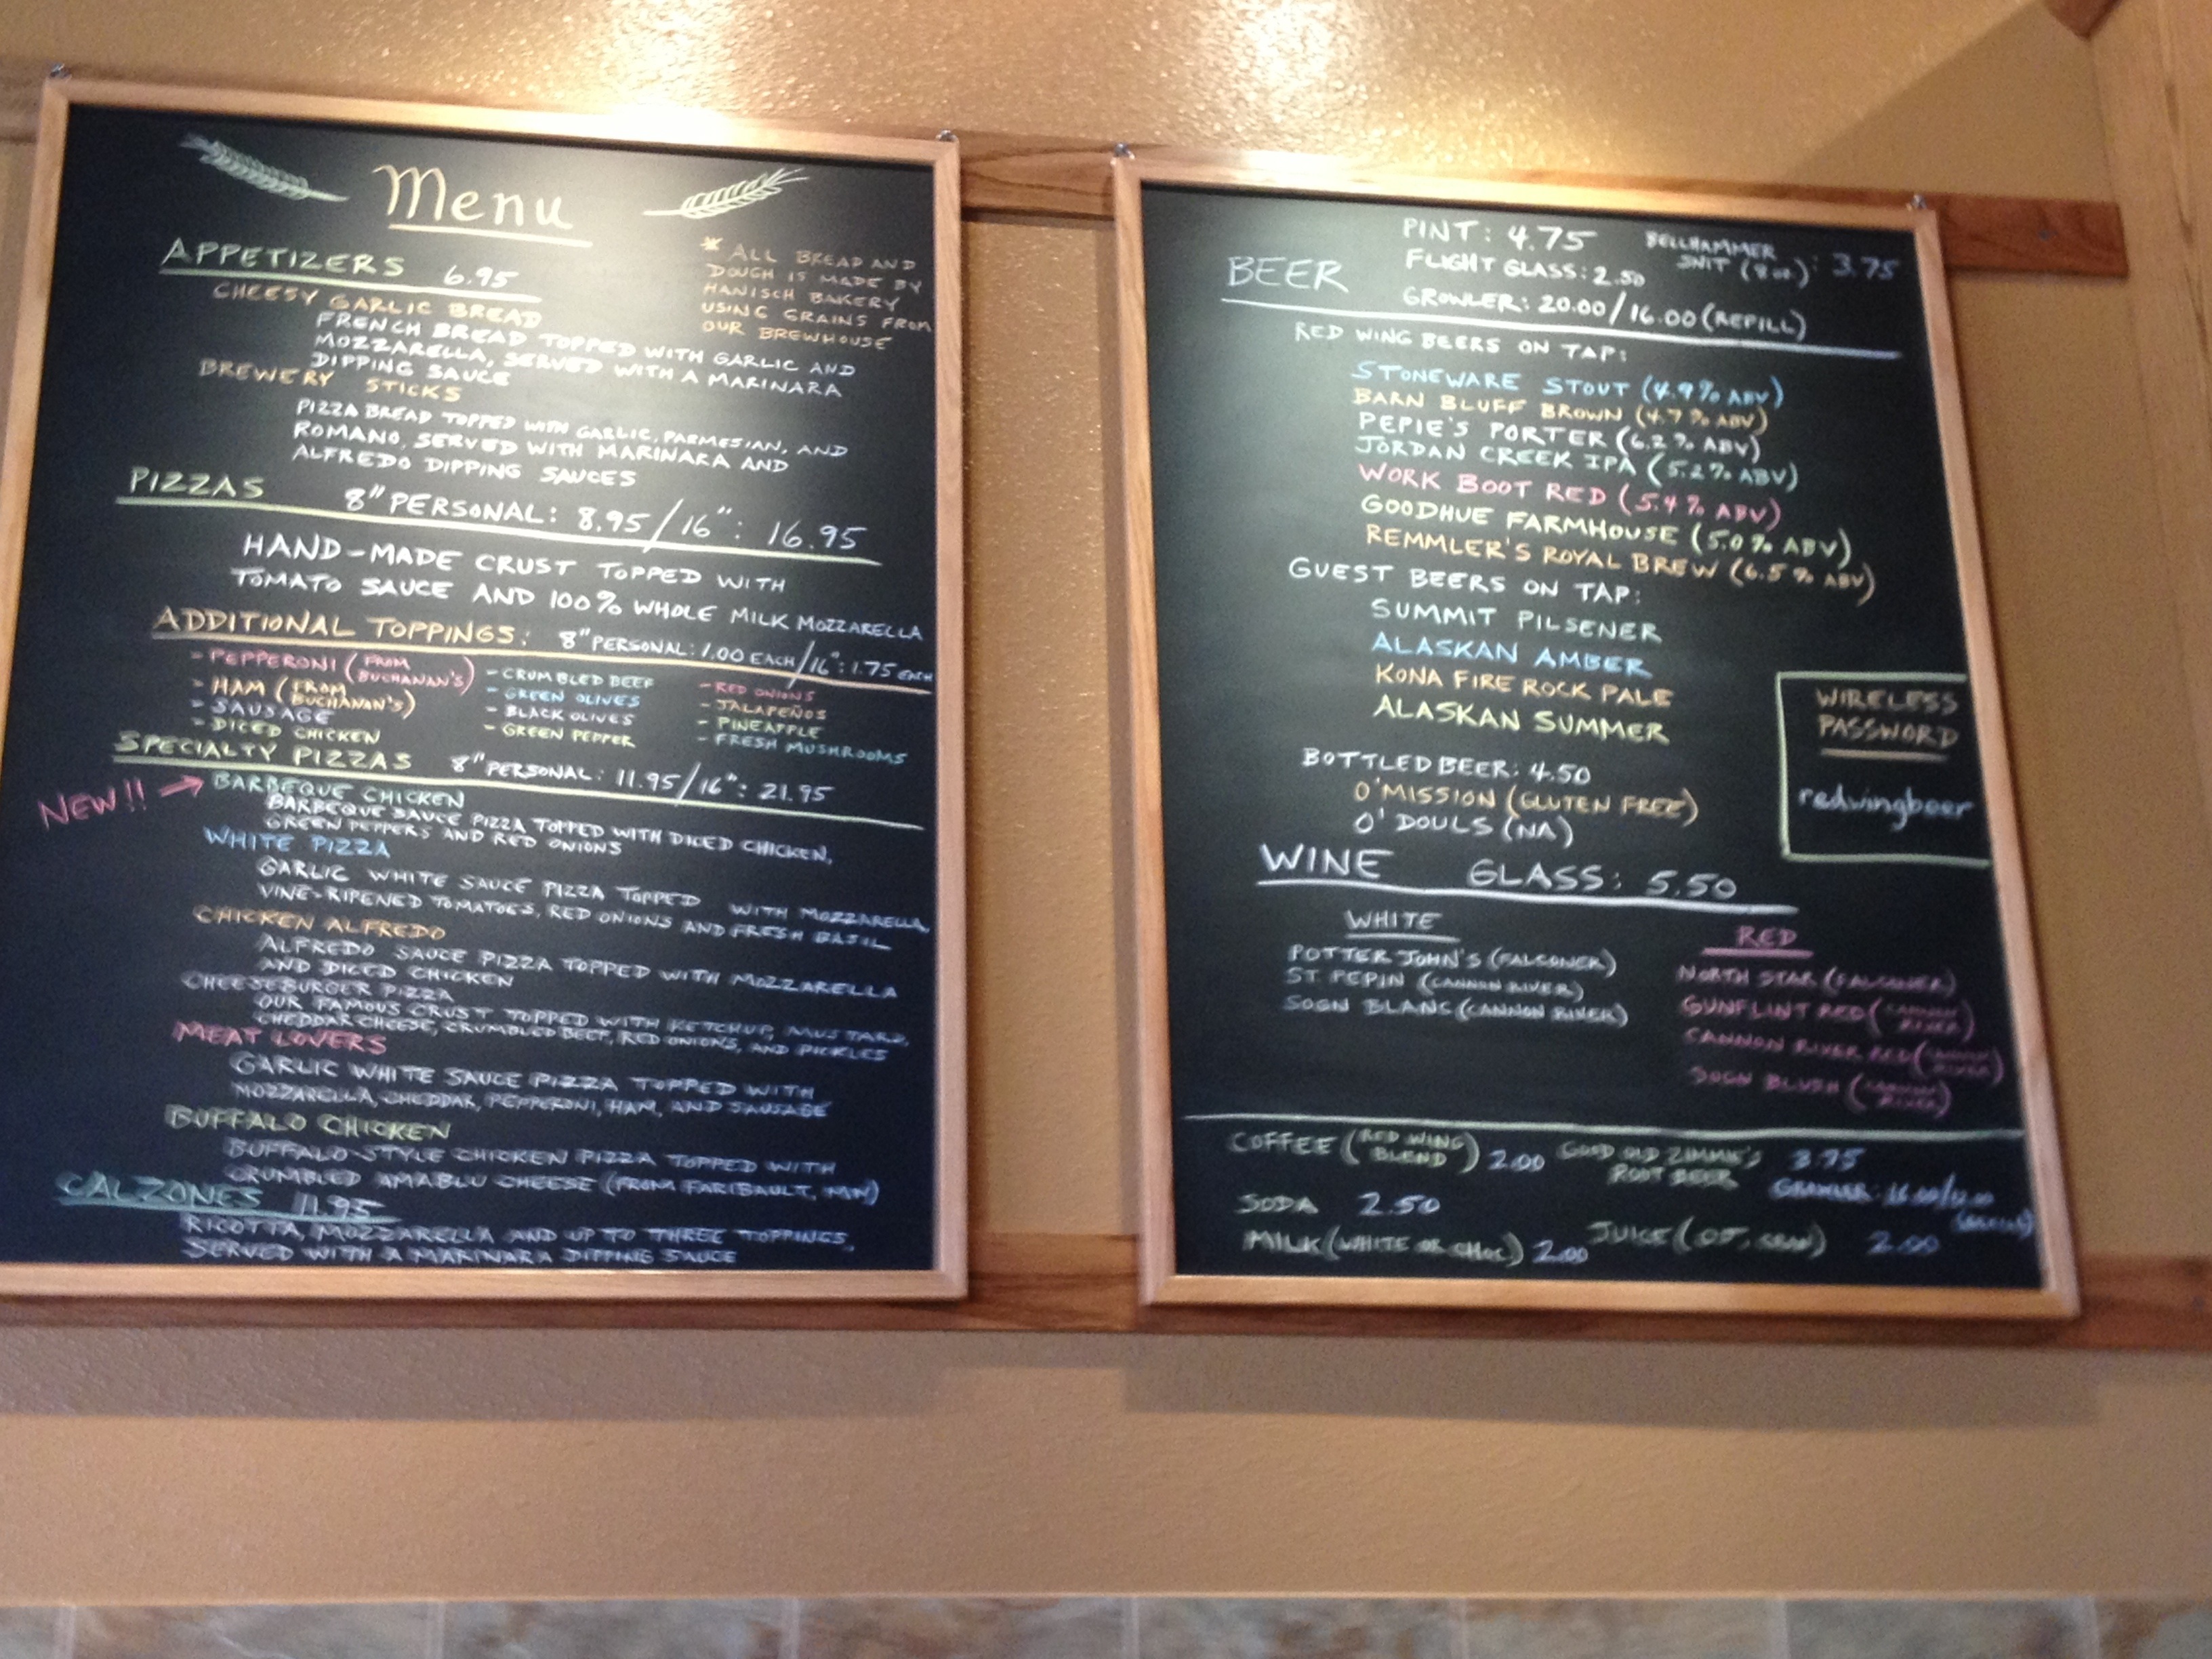 Menu
APPETIZERS 6.95
* ALL BREAD AND
DOUGH IS MADE BY
HANISCH BAKERY
USING GRAINS FROM
OUR BREWHOUSE
CHEESY GARLIC BREAD
FRENCH BREAD TOPPED WITH GARLIC AND
MOZZARELLA, SERVED WITH A MARINARA
DIPPING SAUCE
BREWERY STICKS
PIZZA BREAD TOPPED WITH GARLIC, PARMESIAN, AND
ROMANO, SERVED WITH MARINARA AND
ALFREDO DIPPING SAUCES
PIZZAS 8" PERSONAL: 8.95/16": 16.95
HAND-MADE CRUST TOPPED WITH
TOMATO SAUCE AND 100% WHOLE MILK MOZZARELLA
ADDITIONAL TOPPINGS: 8" PERSONAL: 1.00 EACH/16": 1.75 EACH
- PEPPERONI (FROM BUCHANAN'S)
- HAM (FROM BUCHANAN'S)
- SAUSAGE
- DICED CHICKEN
- CRUMBLED BEEF
- GREEN OLIVES
- BLACK OLIVES
- GREEN PEPPER
- RED ONIONS
- JALAPEÑOS
- PINEAPPLE
- FRESH MUSHROOMS
SPECIALTY PIZZAS 8" PERSONAL: 11.95/16": 21.95
NEW!! → BARBEQUE CHICKEN
BARBEQUE SAUCE PIZZA TOPPED WITH DICED CHICKEN,
GREEN PEPPERS AND RED ONIONS
WHITE PIZZA
GARLIC WHITE SAUCE PIZZA TOPPED WITH MOZZARELLA,
VINE-RIPENED TOMATOES, RED ONIONS AND FRESH BASIL
CHICKEN ALFREDO
ALFREDO SAUCE PIZZA TOPPED WITH MOZZARELLA
AND DICED CHICKEN
CHEESEBURGER PIZZA
OUR FAMOUS CRUST TOPPED WITH KETCHUP, MUSTARD,
CHEDDAR CHEESE, CRUMBLED BEEF, RED ONIONS, AND PICKLES
MEAT LOVERS
GARLIC WHITE SAUCE PIZZA TOPPED WITH
MOZZARELLA, CHEDDAR, PEPPERONI, HAM, AND SAUSAGE
BUFFALO CHICKEN
BUFFALO-STYLE CHICKEN PIZZA TOPPED WITH
CRUMBLED AMABLU CHEESE (FROM FARIBAULT, MN)
CALZONES 11.95
RICOTTA, MOZZARELLA AND UP TO THREE TOPPINGS,
SERVED WITH A MARINARA DIPPING SAUCE
BEER
PINT: 4.75
FLIGHT GLASS: 2.50
GROWLER: 20.00/16.00 (REFILL)
BELLHAMMER
SNIT (8 oz): 3.75
RED WING BEERS ON TAP:
STONEWARE STOUT (4.9% ABV)
BARN BLUFF BROWN (4.7% ABV)
PEPIE'S PORTER (6.2% ABV)
JORDAN CREEK IPA (5.2% ABV)
WORK BOOT RED (5.4% ABV)
GOODHUE FARMHOUSE (5.0% ABV)
REMMLER'S ROYAL BREW (6.5% ABV)
GUEST BEERS ON TAP:
SUMMIT PILSENER
ALASKAN AMBER
KONA FIRE ROCK PALE
ALASKAN SUMMER
BOTTLED BEER: 4.50
O'MISSION (GLUTEN FREE)
O'DOULS (NA)
WIRELESS
PASSWORD
redwingbeer
WINE GLASS: 5.50
WHITE
POTTER JOHN'S (FALCONER)
ST. PEPIN (CANNON RIVER)
SOGN BLANC (CANNON RIVER)
RED
NORTH STAR (FALCONER)
GUNFLINT RED (CANNON RIVER)
CANNON RIVER RED (CANNON RIVER)
SOGN BLUSH (CANNON RIVER)
COFFEE (RED WING BLEND) 2.00
SODA 2.50
MILK (WHITE OR CHOC) 2.00
GOOD OLD ZIMMIE'S
ROOT BEER 3.75
GROWLER:
JUICE (OJ, CRAN) 2.00